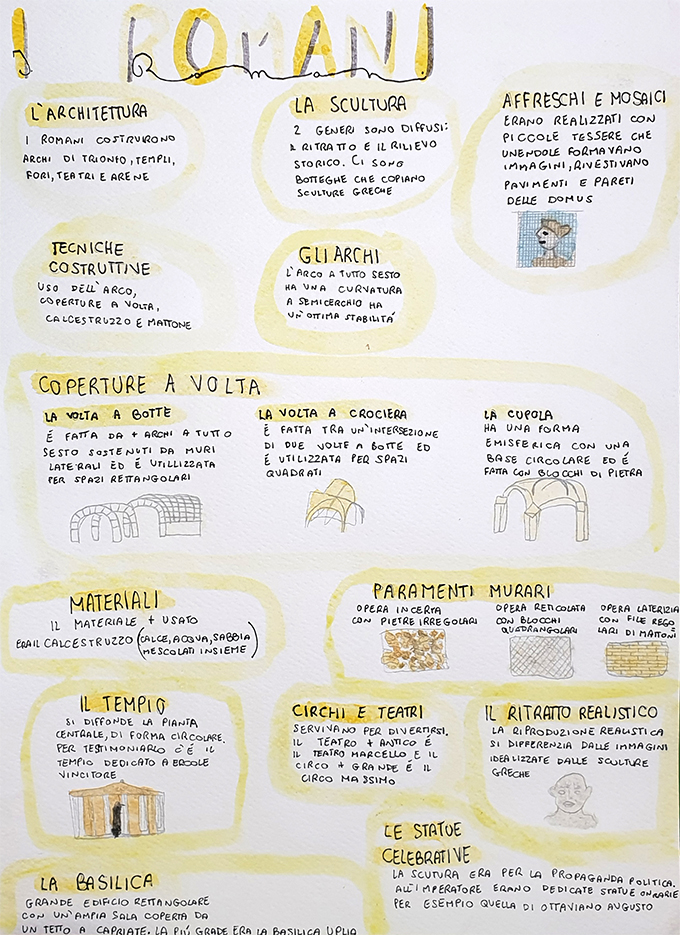 I ROMANI
L'ARCHITETTURA
I ROMANI COSTRUIRONO
ARCHI DI TRIONFO, TEMPLI,
FORI, TEATRI E ARENE
LA SCULTURA
2 GENERI SONO DIFFUSI:
IL RITRATTO E IL RILIEVO
STORICO. CI SONO
BOTTEGHE CHE COPIANO
SCULTURE GRECHE
AFFRESCHI E MOSAICI
ERANO REALIZZATI CON
PICCOLE TESSERE CHE
UNENDOLE FORMAVANO
IMMAGINI, RIVESTIVANO
PAVIMENTI E PARETI
DELLE DOMUS
TECNICHE
COSTRUTTIVE
USO DELL'ARCO,
COPERTURE A VOLTA,
CALCESTRUZZO E MATTONE
GLI ARCHI
L'ARCO A TUTTO SESTO
HA UNA CURVATURA
A SEMICERCHIO HA
UN'OTTIMA STABILITÁ
COPERTURE A VOLTA
LA VOLTA A BOTTE
É FATTA DA + ARCHI A TUTTO
SESTO SOSTENUTI DA MURI
LATERALI ED É UTILLIZZATA
PER SPAZI RETTANGOLARI
LA VOLTA A CROCIERA
É FATTA TRA UN'INTERSEZIONE
DI DUE VOLTE A BOTTE ED
É UTILIZZATA PER SPAZI
QUADRATI
LA CUPOLA
HA UNA FORMA
EMISFERICA CON UNA
BASE CIRCOLARE ED É
FATTA CON BLOCCHI DI PIETRA
MATERIALI
IL MATERIALE + USATO
ERA IL CALCESTRUZZO (CALCE, ACQUA, SABBIA
MESCOLATI INSIEME)
PARAMENTI MURARI
OPERA INCERTA
CON PIETRE IRREGOLARI
OPERA RETICOLATA
CON BLOCCHI
QUADRANGOLARI
OPERA LATERIZIA
CON FILE REGO
LARI DI MATTONI
IL TEMPIO
SI DIFFONDE LA PIANTA
CENTRALE, DI FORMA CIRCOLARE.
PER TESTIMONIARLO C'É IL
TEMPIO DEDICATO A ERCOLE
VINCITORE
CIRCHI E TEATRI
SERVIVANO PER DIVERTIRSI.
IL TEATRO + ANTICO É
IL TEATRO MARCELLO E IL
CIRCO + GRANDE É IL
CIRCO MASSIMO
IL RITRATTO REALISTICO
LA RIPRODUZIONE REALISTICA
SI DIFFERENZIA DALLE IMMAGINI
IDEALIZZATE DALLE SCULTURE
GRECHE
LE STATUE
CELEBRATIVE
LA SCUTURA ERA PER LA PROPAGANDA POLITICA.
ALL'IMPERATORE ERANO DEDICATE STATUE ONRARIE
PER ESEMPIO QUELLA DI OTTAVIANO AUGUSTO
LA BASILICA
GRANDE EDIFICIO RETTANGOLARE
CON UN'AMPIA SALA COPERTA DA
UN TETTO A CAPRIATE. LA PIÚ GRADE ERA LA BASILICA UPLIA